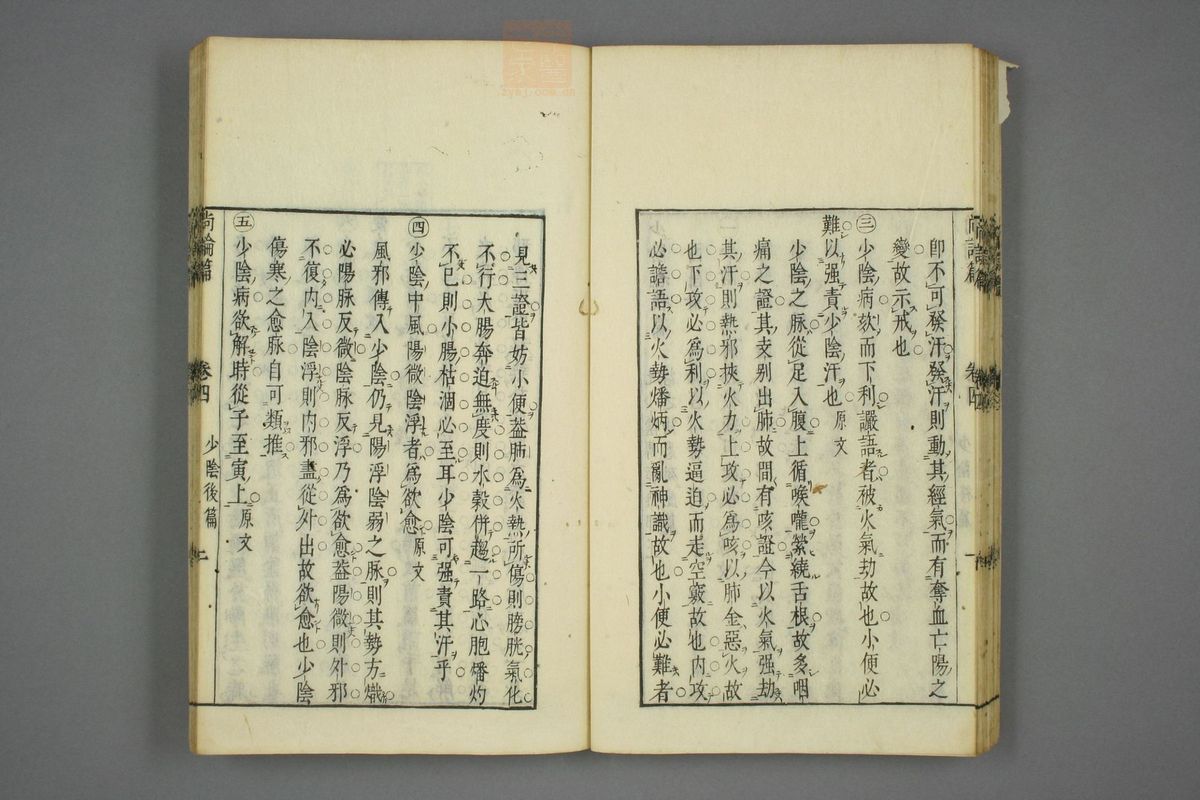 即不可發汗發汗則動其經氣而有奪血亡陽之
變故示戒也
㊂少陰病欬而下利讝語者被火氣劫故也小便必
難以强責少陰汗也 原文
少陰之脉從足入腹上循喉嚨縈繞舌根故多咽
痛之證其支别出肺故間有咳證今以火氣强劫
其汗則熱邪挾火力上攻必爲咳以肺金惡火故
也下攻必爲利以火勢逼迫而走空竅故也内攻
必譫語以火勢燔炳而亂神識故也小便必難者
見三證皆妨小便葢肺爲火熱所傷則膀胱氣化
不行大腸奔迫無度則水穀併趨一路心胞燔灼
不已則小腸枯涸必至耳少陰可强責其汗乎
㊃少陰中風陽微陰浮者爲欲愈 原文
風邪傳入少陰仍見陽浮陰弱之脉則其勢方熾
必陽脉反微陰脉反浮乃爲欲愈葢陽微則外邪
不復内入陰浮則内邪盡從外出故欲愈也少陰
傷寒之愈脉自可類推
㊄少陰病欲解時從子至寅上 原文
尚論篇 卷四 少陰後篇
zysj.com.cn